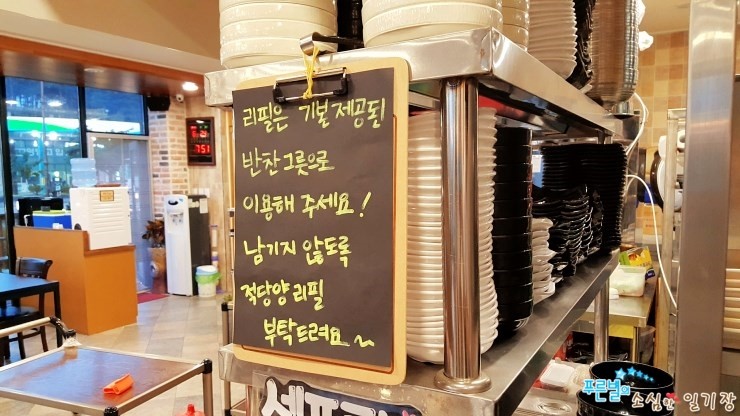 리필은 기본제공된
반찬그릇으로
이용해 주세요!
남기지 않도록
적당양 리필
부탁드려요~
751
푸른별의 소심한 일기장